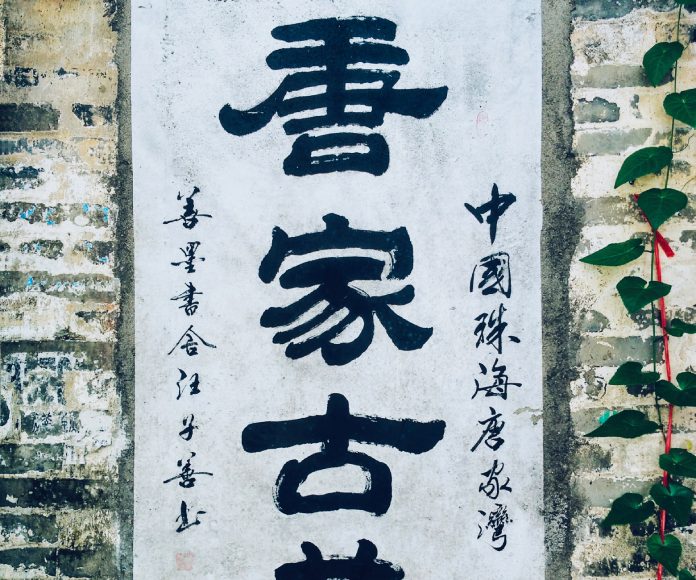 中國珠海唐家灣
唐家古
善墨書舍汪子善书